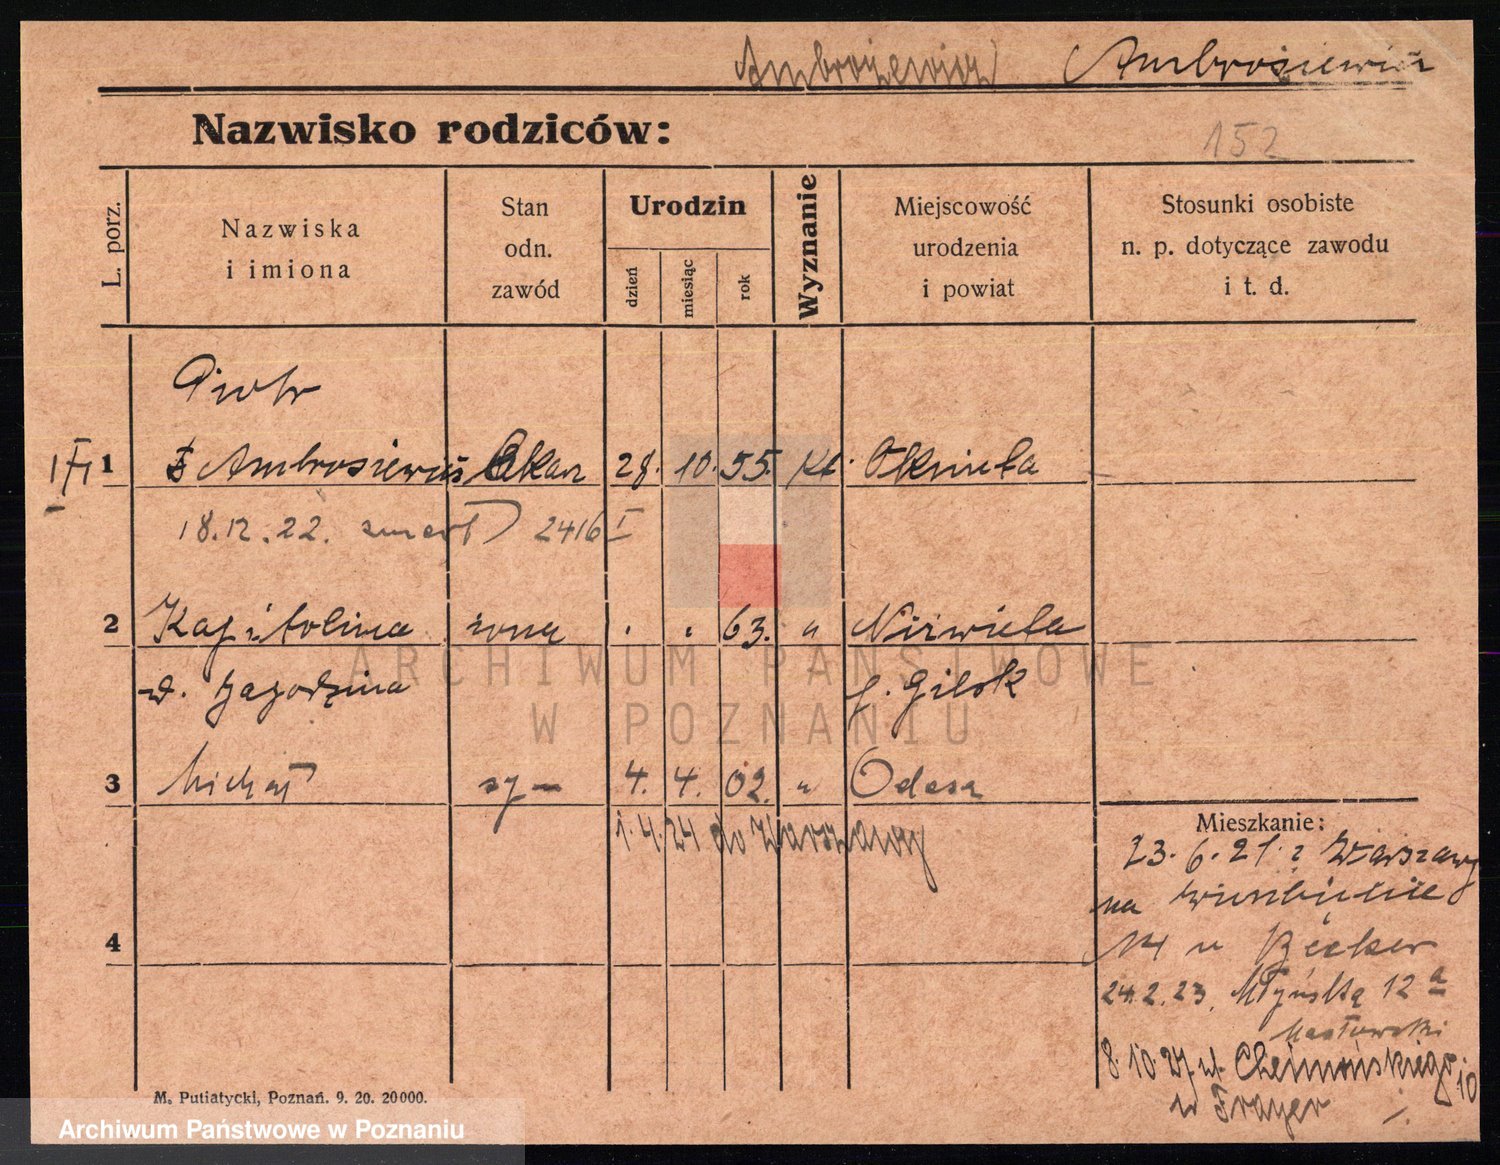 Ambrożewicz Ambrosiewicz
Nazwisko rodziców:
152
L. porz.
Nazwiska
i imiona
Stan
odn.
zawód
Urodzin
dzień
miesiąc
rok
Wyznanie
Miejscowość
urodzenia
i powiat
Stosunki osobiste
n. p. dotyczące zawodu
i t. d.
Piotr
1 Ambrosiewicz 28. 10. 55. kt.
18.12.22. zmarł 2416 I
2 Kapitolina żona . . 63. "
d. Jagodzina
3 Michał sy– 4. 4. 02. " Odesa
1.4.24 do Warszawy
Mieszkanie:
23.6.21. z Warszawy
na
14 u Becker
4
24.2.23. Młyńska 12a
Masłowski
8.10.27 ul. Chełmońskiego 10
u Frayer
M. Putiatycki, Poznań. 9. 20. 20000.
ARCHIWUM PAŃSTWOWE
W POZNANIU
Archiwum Państwowe w Poznaniu